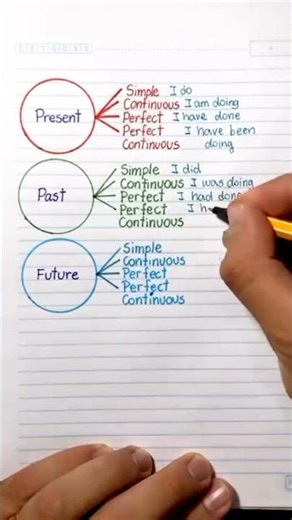 Present
Simple I do
Continuous I am doing
Perfect I have done
Perfect I have been
Continuous doing
Past
Simple I did
Continuous I was doing
Perfect I had done
Perfect I h
Continuous
Future
Simple
Continuous
Perfect
Perfect
Continuous